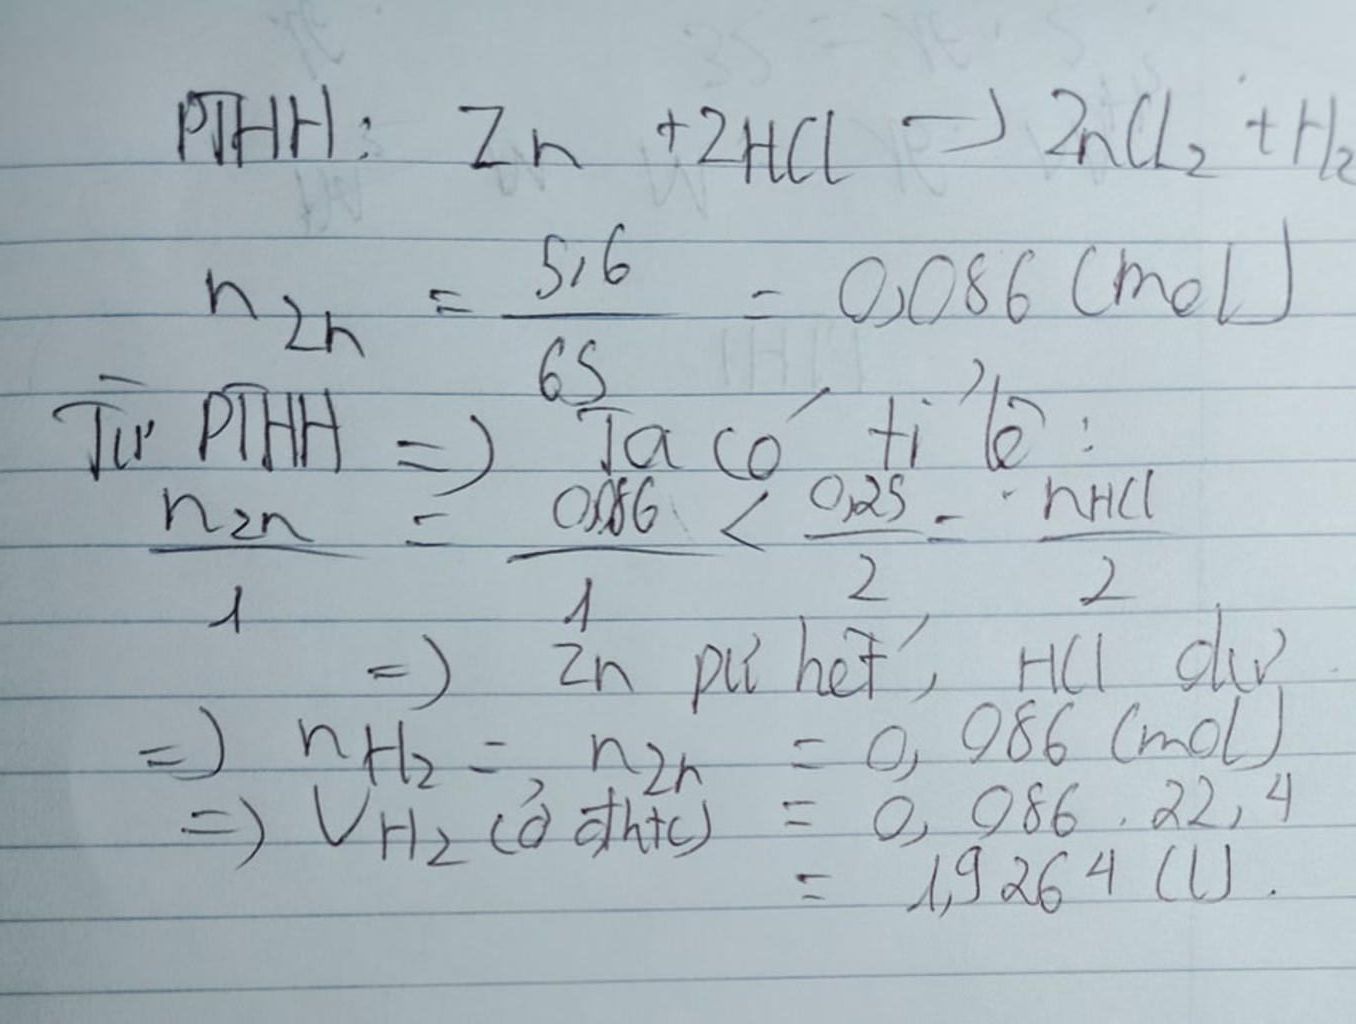 PTHH: Zn + 2HCl → ZnCl₂ + H₂
n Zn = 5,6 / 65 = 0,086 (mol)
Từ PTHH => Ta có tỉ lệ:
nZn / 1 = 0,086 / 1 < 0,25 / 2 = nHCl / 2
=> Zn pứ hết, HCl dư
=> nH₂ = nZn = 0,086 (mol)
=> VH₂ (ở đktc) = 0,086 . 22,4
= 1,9264 (l).